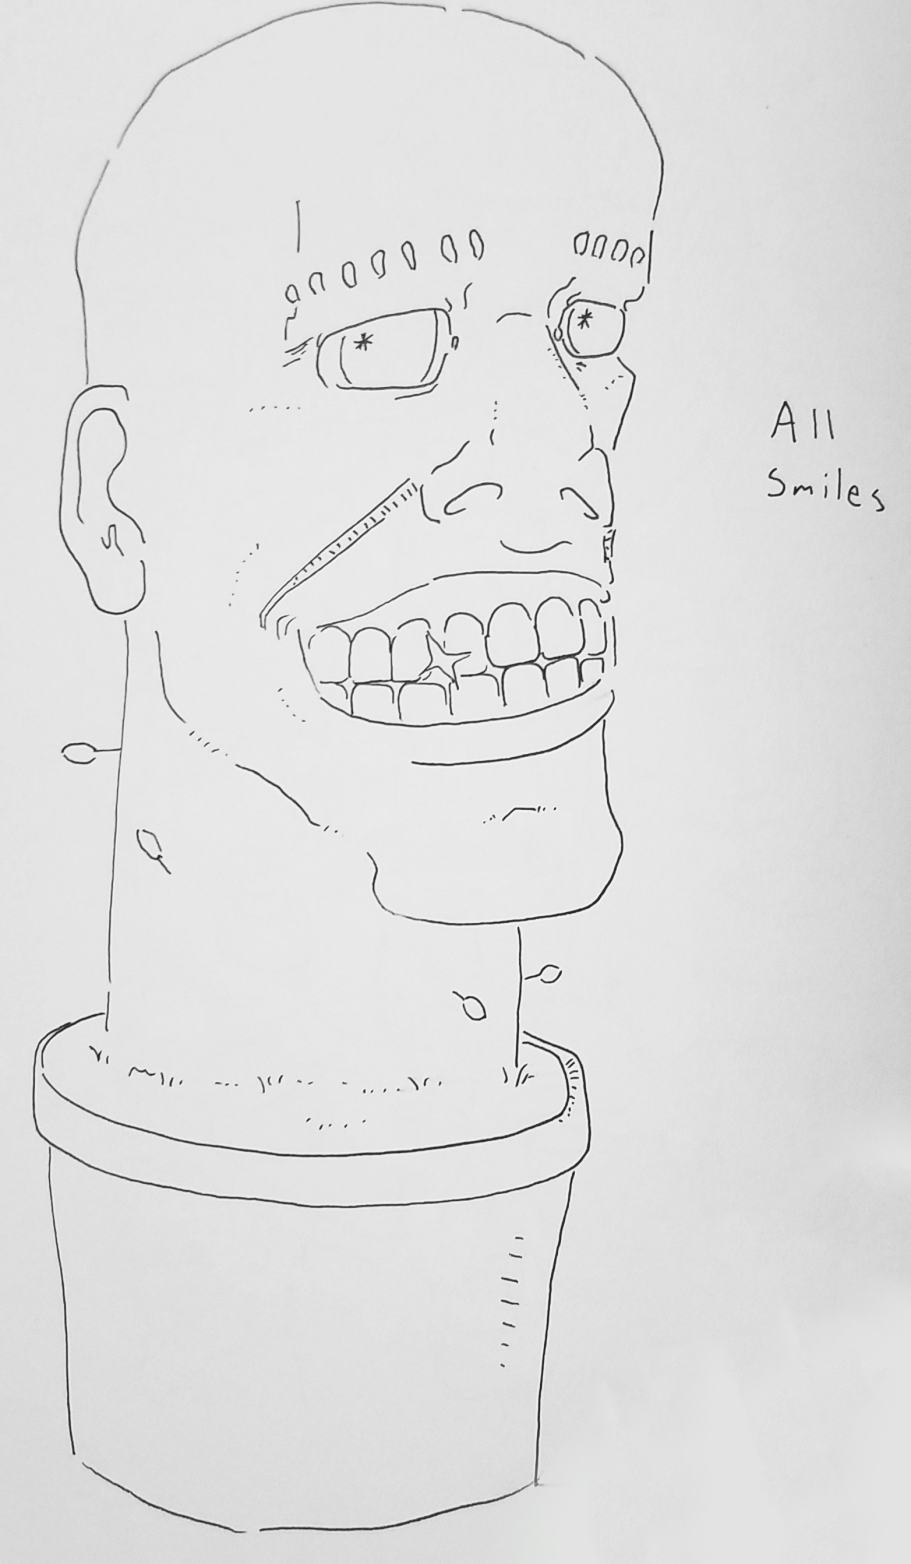 All
Smiles